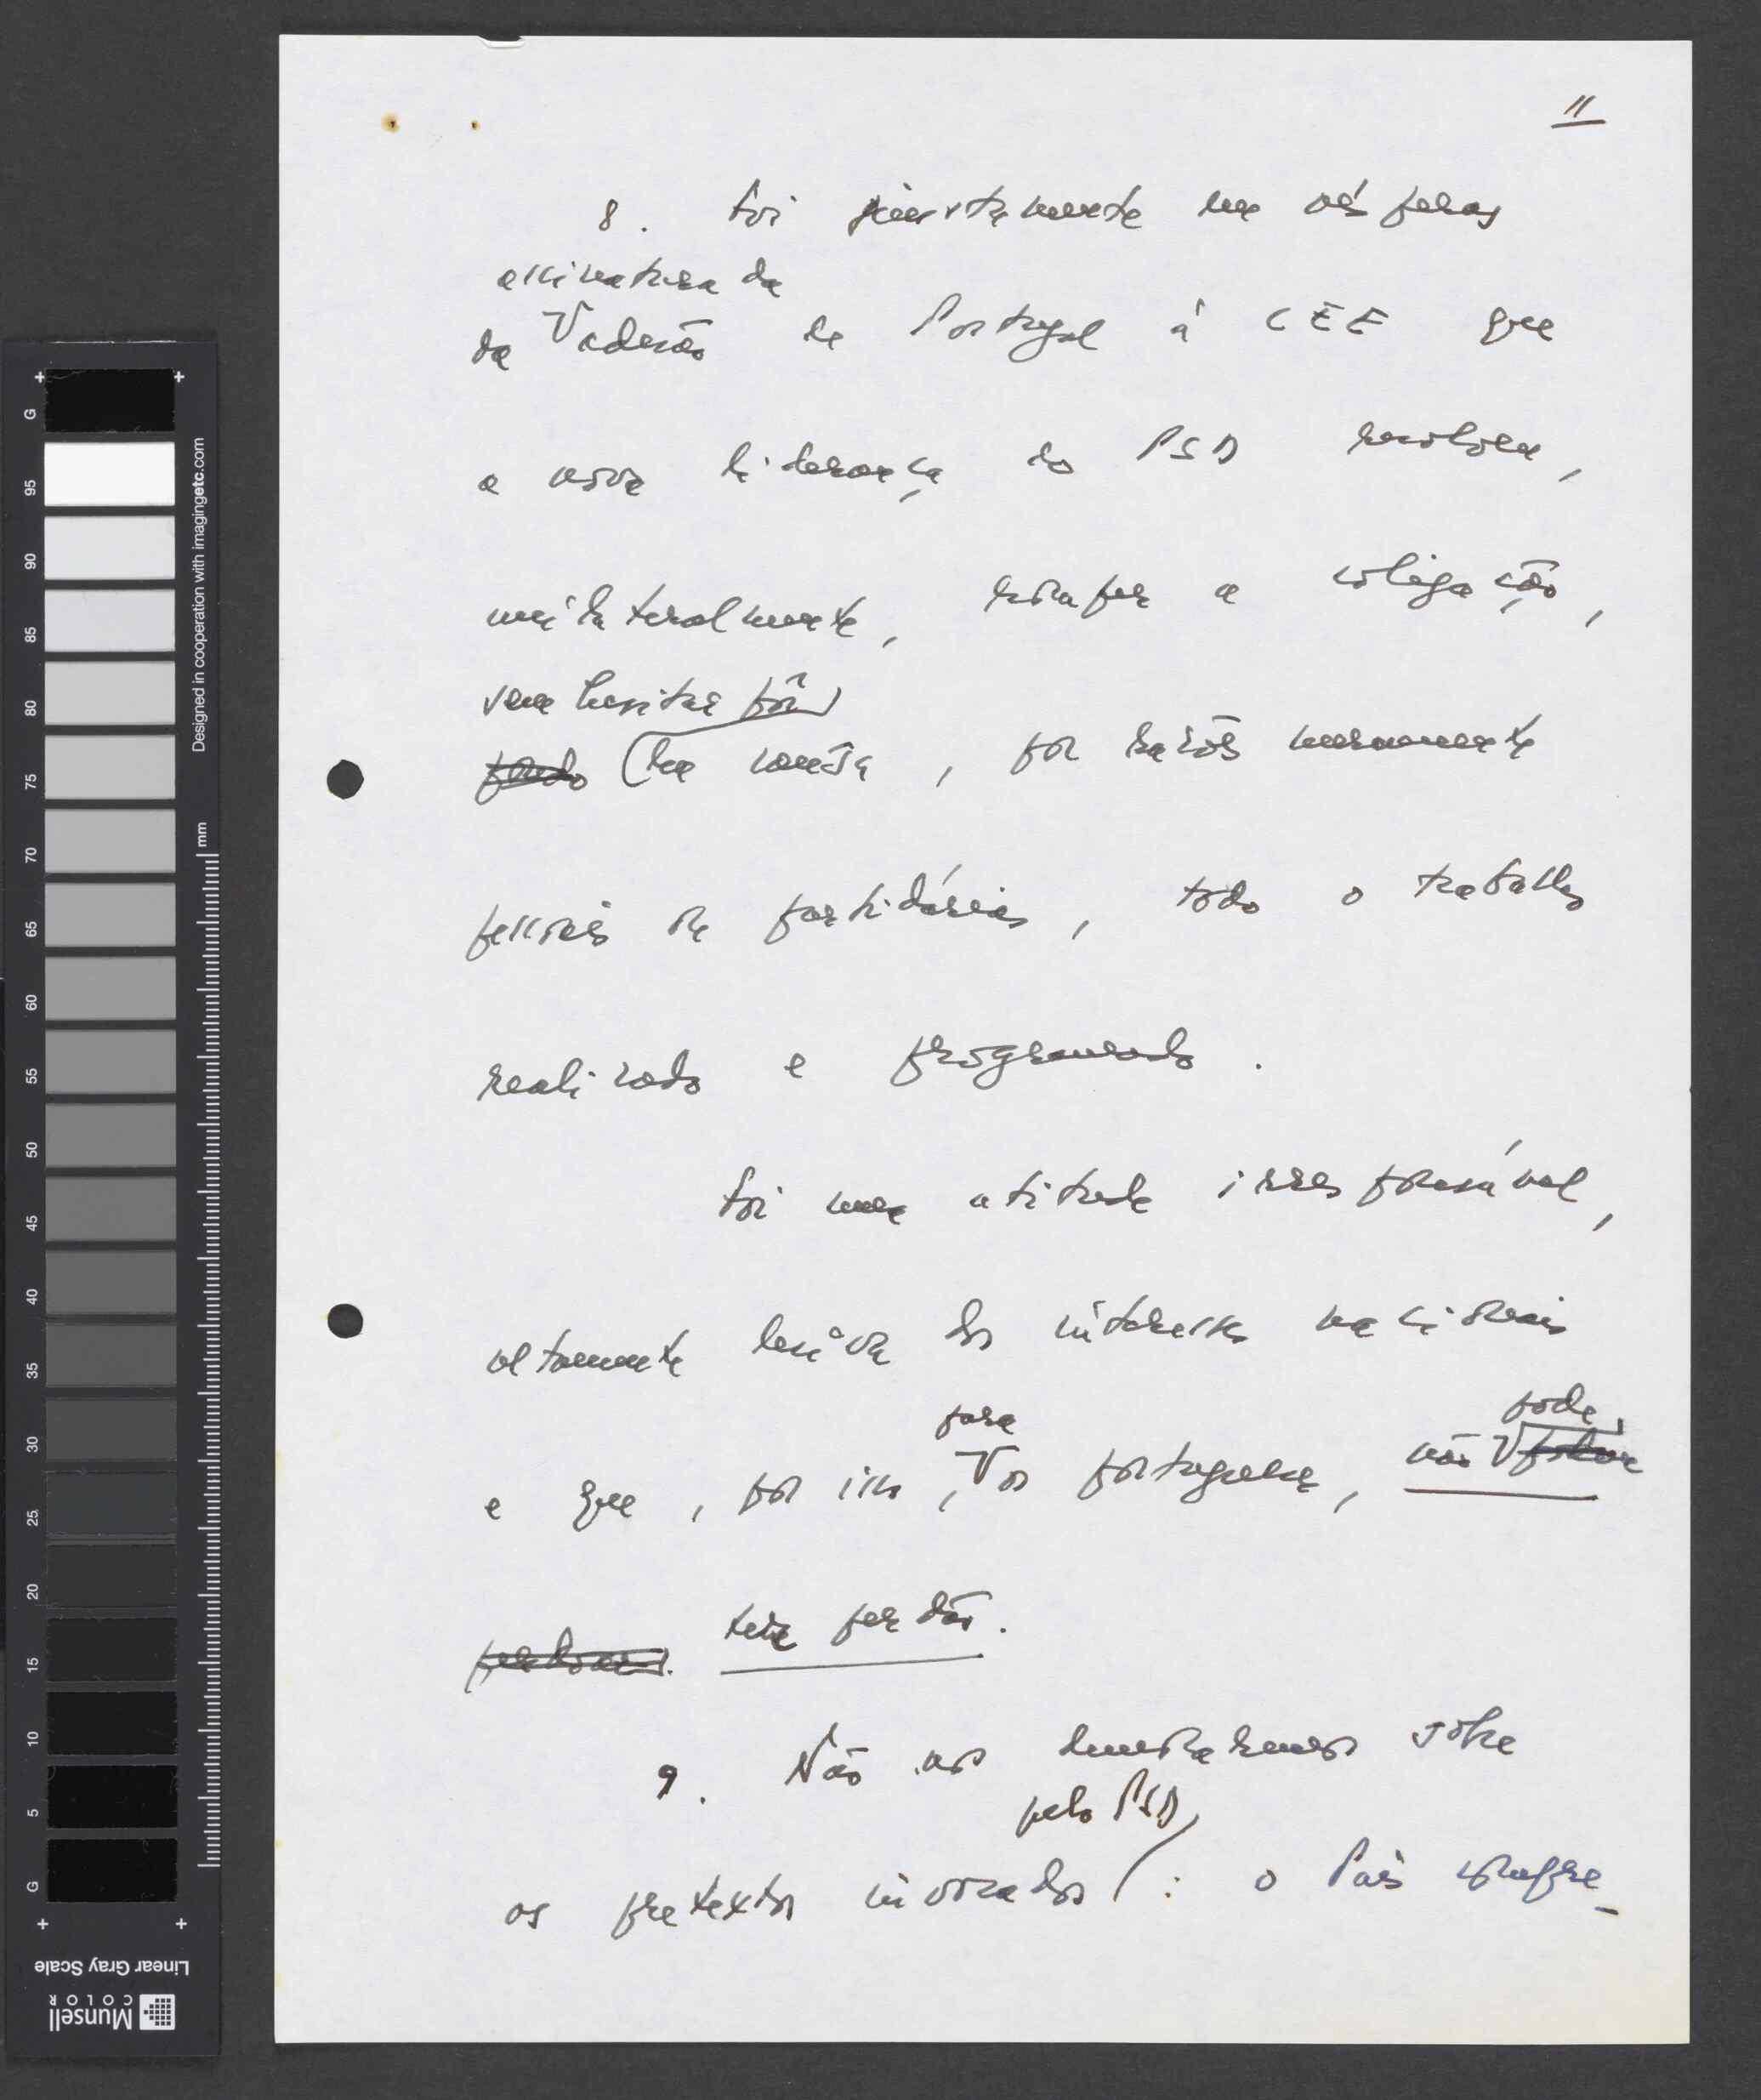 11
8. Foi justamente na vésperas
assinatura da
da adesão de Portugal à CEE que
a nova liderança do PSD resolveu,
unilateralmente, romper a coligação,
sem hesitar pôr
pondo em causa, por razões meramente
pessoais ou partidárias, todo o trabalho
realizado e programado.
Foi uma atitude irresponsável,
altamente lesiva dos interesses nacionais
para pode
e que, por isso, os portugueses, não
perdoar. ter perdão.
9. Não nos demoraremos sobre
pelo PSD
os pretextos invocados: o País compre-
G 95 90 85 80 75 70 65 60 55 50 45 40 35 30 25 20 15 10 5 G
Designed in cooperation with imagingetc.com
mm
Linear Gray Scale
Munsell
COLOR